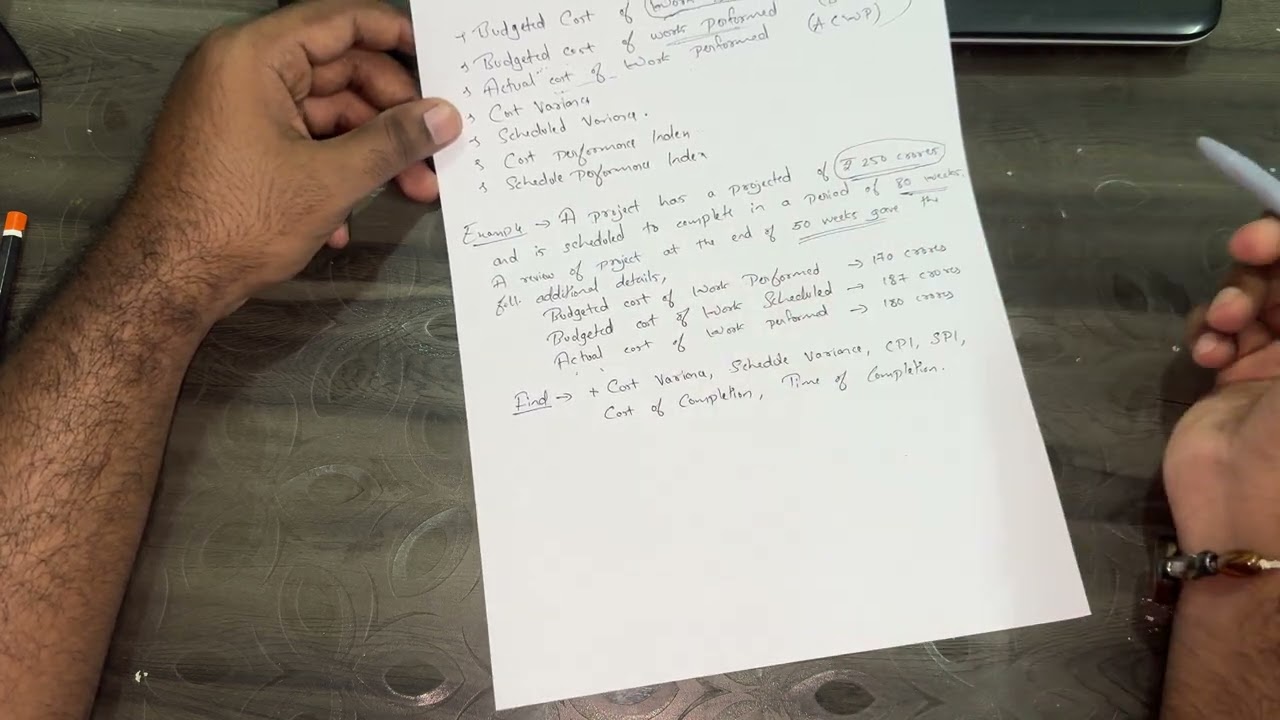 → Budgeted Cost of Work
→ Budgeted cost of work performed
→ Actual cost of Work performed (ACWP)
→ Cost Variance
→ Scheduled Variance.
→ Cost performance Index
→ Schedule performance Index
Example → A project has a projected of ₹ 250 crores
and is scheduled to complete in a period of 80 weeks.
A review of project at the end of 50 weeks gave the
foll. additional details,
Budgeted cost of Work Performed → 170 crores
Budgeted cost of Work Scheduled → 187 crores
Actual cost of Work performed → 180 crores
Find → + Cost Variance, Schedule Variance, CPI, SPI,
Cost of Completion, Time of Completion.